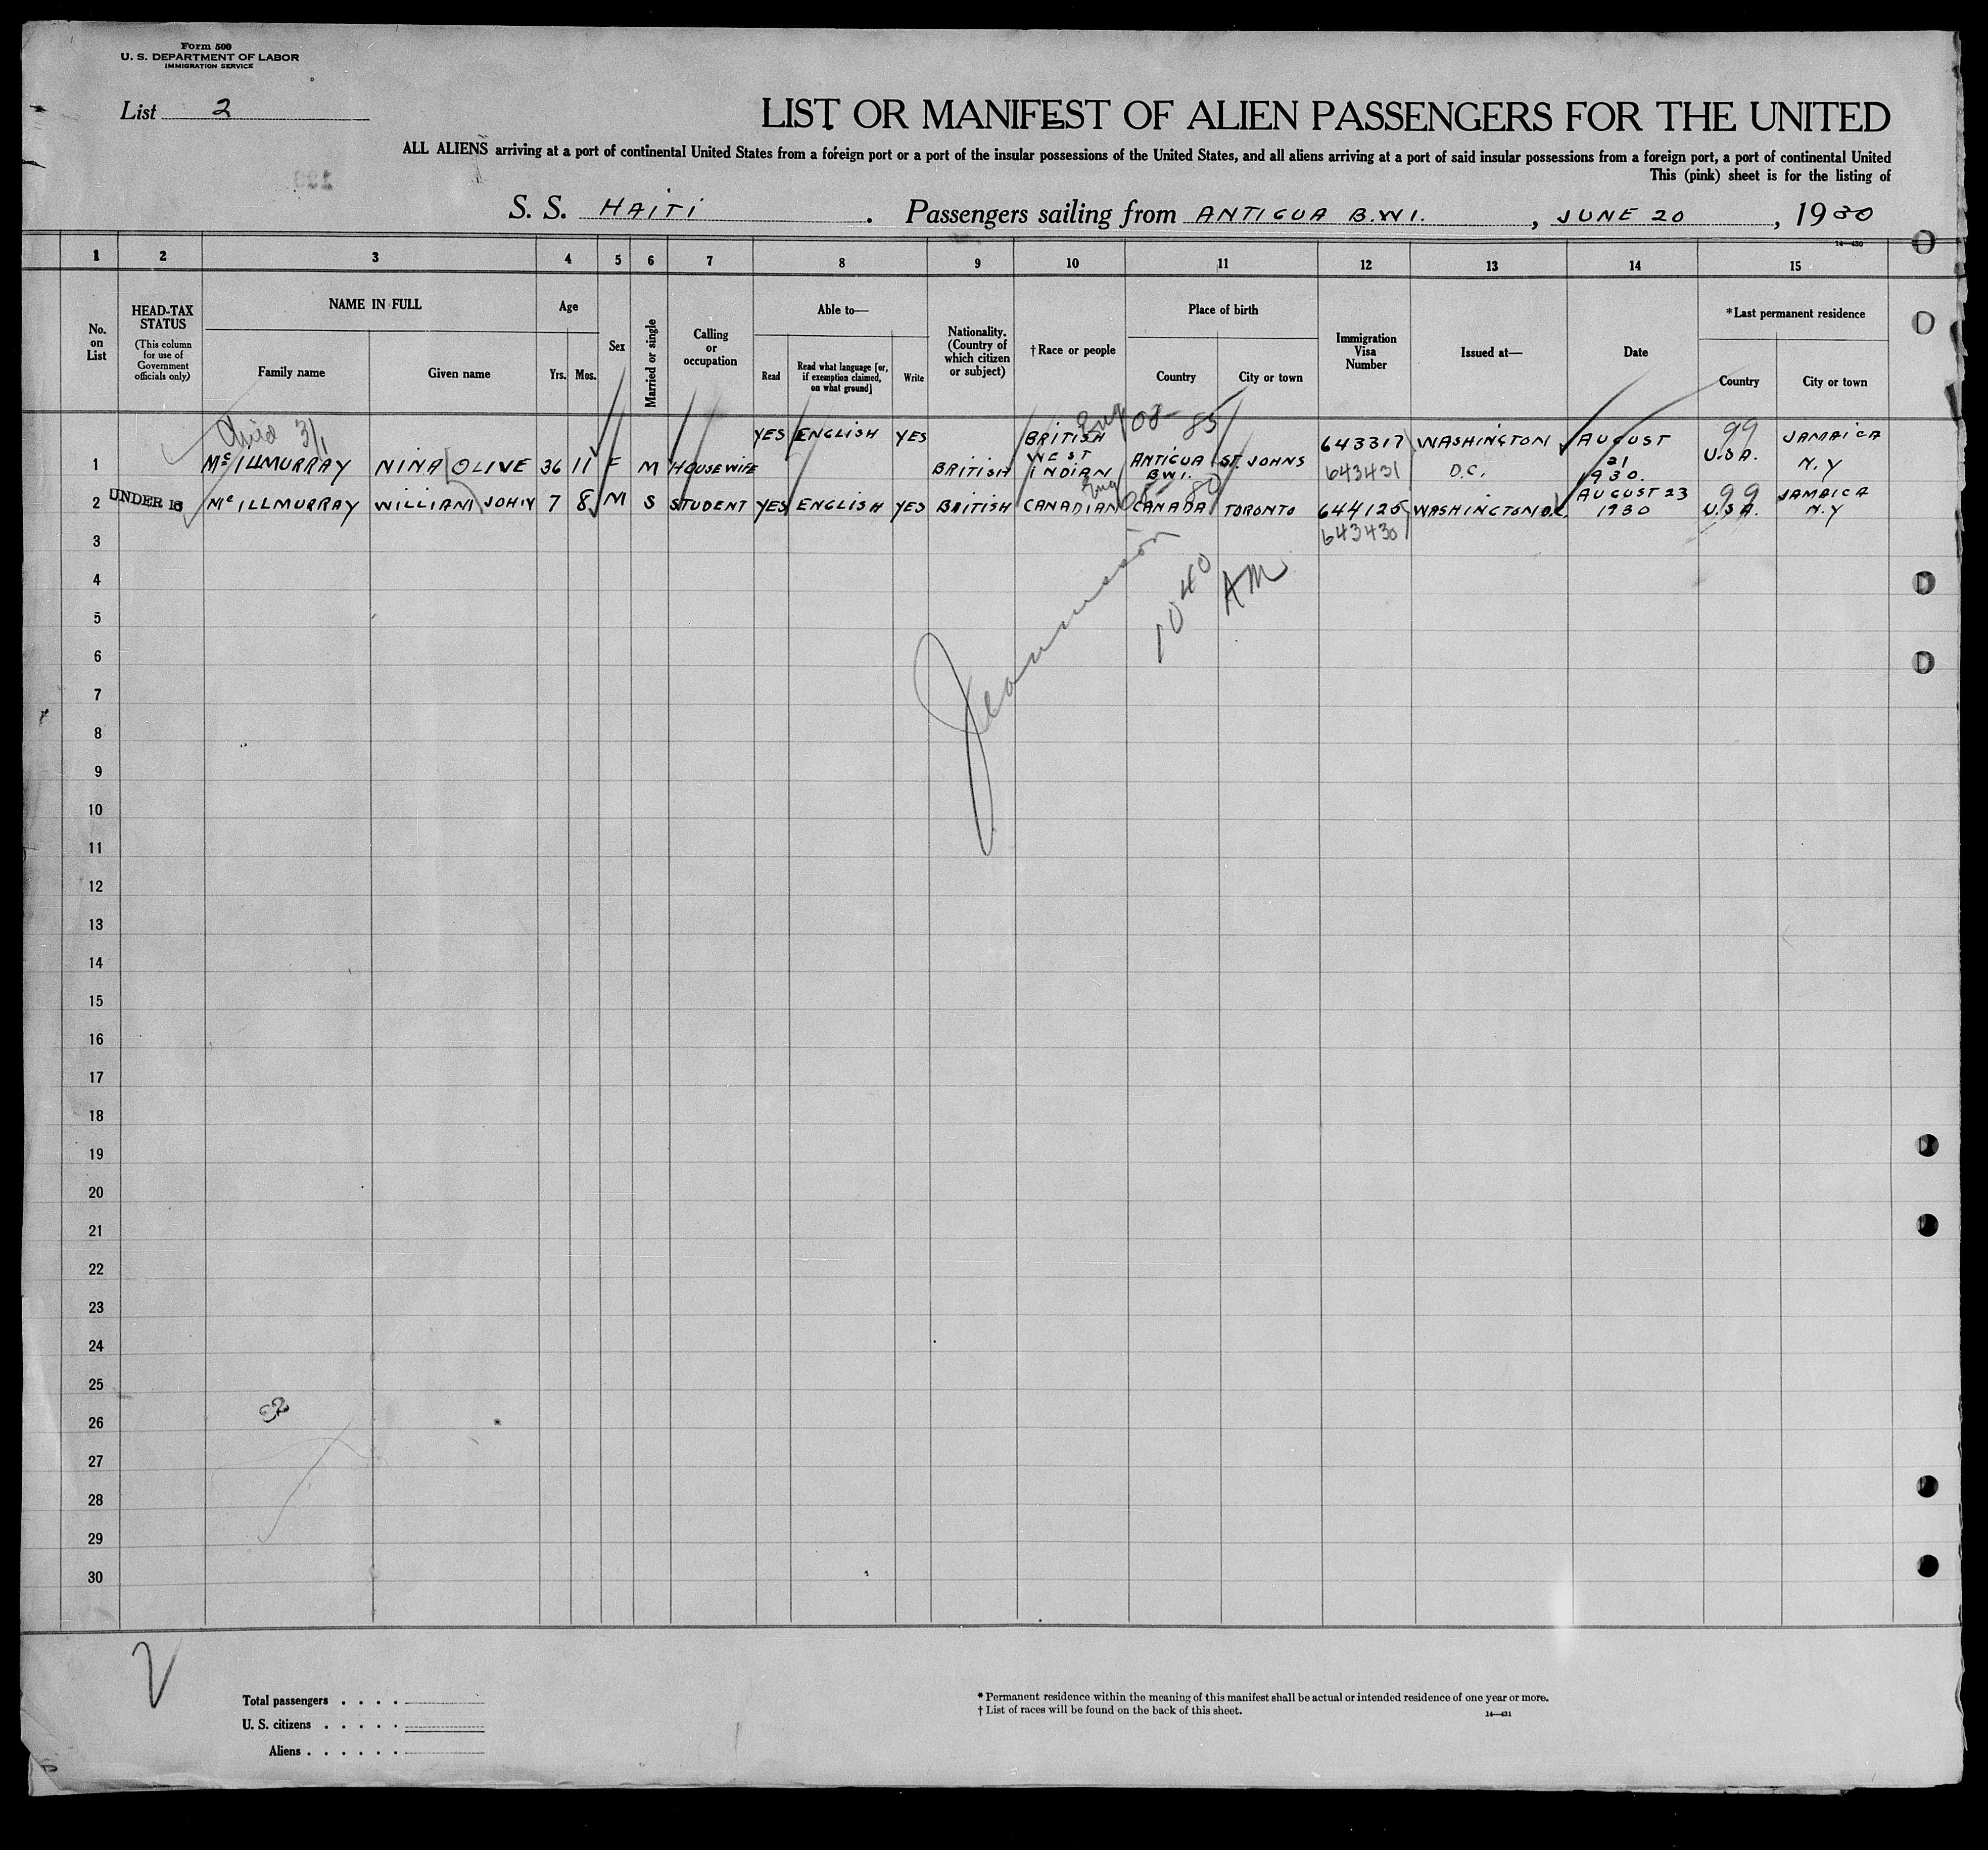 Form 500
U. S. DEPARTMENT OF LABOR
IMMIGRATION SERVICE
List 2
LIST OR MANIFEST OF ALIEN PASSENGERS FOR THE UNITED
ALL ALIENS arriving at a port of continental United States from a foreign port or a port of the insular possessions of the United States, and all aliens arriving at a port of said insular possessions from a foreign port, a port of continental United
This (pink) sheet is for the listing of
S. S. HAITI . Passengers sailing from ANTIGUA B.W.I. , JUNE 20 , 1930
14—430
1 2 3 4 5 6 7 8 9 10 11 12 13 14 15
No. on List
HEAD-TAX STATUS
(This column for use of Government officials only)
NAME IN FULL
Family name Given name
Age
Yrs. Mos.
Sex
Married or single
Calling or occupation
Able to—
Read
Read what language [or, if exemption claimed, on what ground]
Write
Nationality. (Country of which citizen or subject)
† Race or people
Place of birth
Country City or town
Immigration Visa Number
Issued at—
Date
* Last permanent residence
Country City or town
Child 3/1
08- 85
99
1 McILLMURRAY NINA OLIVE 36 11 F M HOUSEWIFE YES ENGLISH YES BRITISH BRITISH WEST INDIAN ANTIGUA B.W.I. ST. JOHNS 643317 WASHINGTON D.C. AUGUST 21 1930. U.S.A. JAMAICA N.Y
643431
99
2 UNDER 16 McILLMURRAY WILLIAM JOHN 7 8 M S STUDENT YES ENGLISH YES BRITISH CANADIAN CANADA TORONTO 644125 WASHINGTON D.C. AUGUST 23 1930 U.S.A. JAMAICA N.Y
643430
3
4
10 40 AM
5
6
7
8
9
10
11
12
13
14
15
16
17
18
19
20
21
22
23
24
25
26
27
28
29
30
Total passengers . . . .
U. S. citizens . . . . .
Aliens . . . . . .
* Permanent residence within the meaning of this manifest shall be actual or intended residence of one year or more.
† List of races will be found on the back of this sheet.
14—431